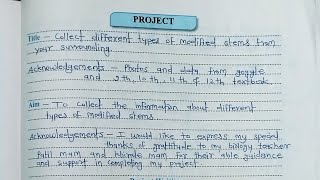 PROJECT
Title - Collect different types of modified stems from
your surrounding.
Acknowledgements - Photos and data from goggle
and 9th, 10th, 11th of 12th textbook.
Aim - To collect the information about different
types of modified stems.
Acknowledgements - I would like to express my special
thanks of gratitude to my biology teacher
Patil mam and mam for their able guidance
and support in completing my project